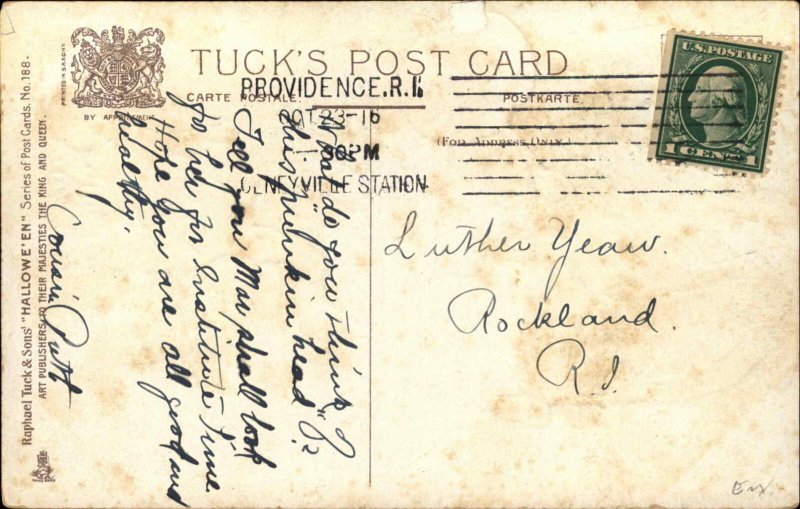 TUCK'S POST CARD
CARTE POSTALE.
POSTKARTE.
(For Address Only.)
PRINTED IN SAXONY
BY APPOINTMENT
PROVIDENCE, R.I.
OCT 23-16
PM
OLNEYVILLE STATION
U.S. POSTAGE
1 CENT
Raphael Tuck & Sons' "HALLOWE'EN" Series of Post Cards. No. 188.
ART PUBLISHERS TO THEIR MAJESTIES THE KING AND QUEEN.
What do you think of
this "punkin head"?
Tell your Ma shall look
for her for Institute time.
Hope you are all good and
healthy.
Cousin Ruth
Luther Yeaw.
Rockland.
R.I.